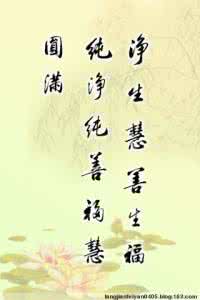 净生慧善生福
纯净纯善福慧
圆满
langjianfeiyan0405.blog.163.com